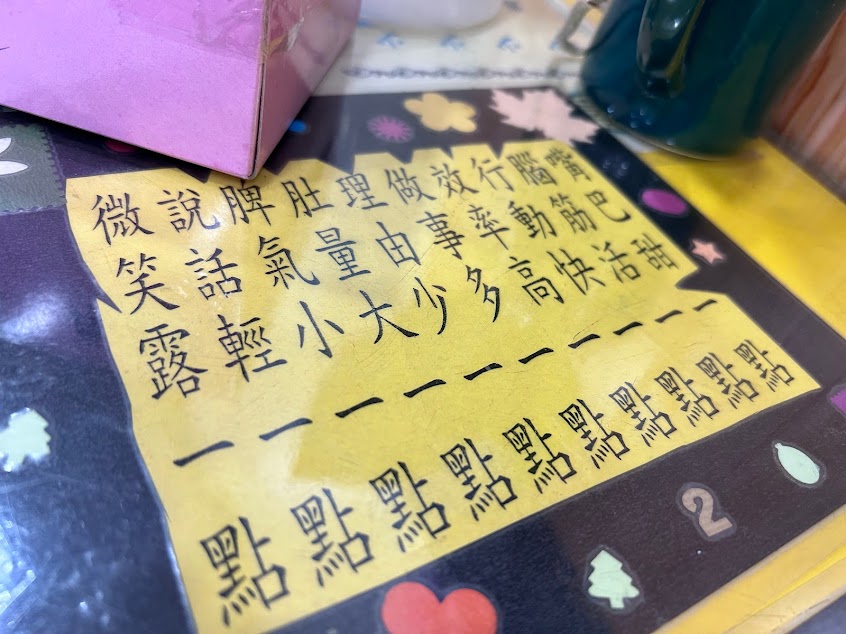 嘴巴甜一點
腦筋活一點
行動快一點
效率高一點
做事多一點
理由少一點
肚量大一點
脾氣小一點
說話輕一點
微笑露一點
2